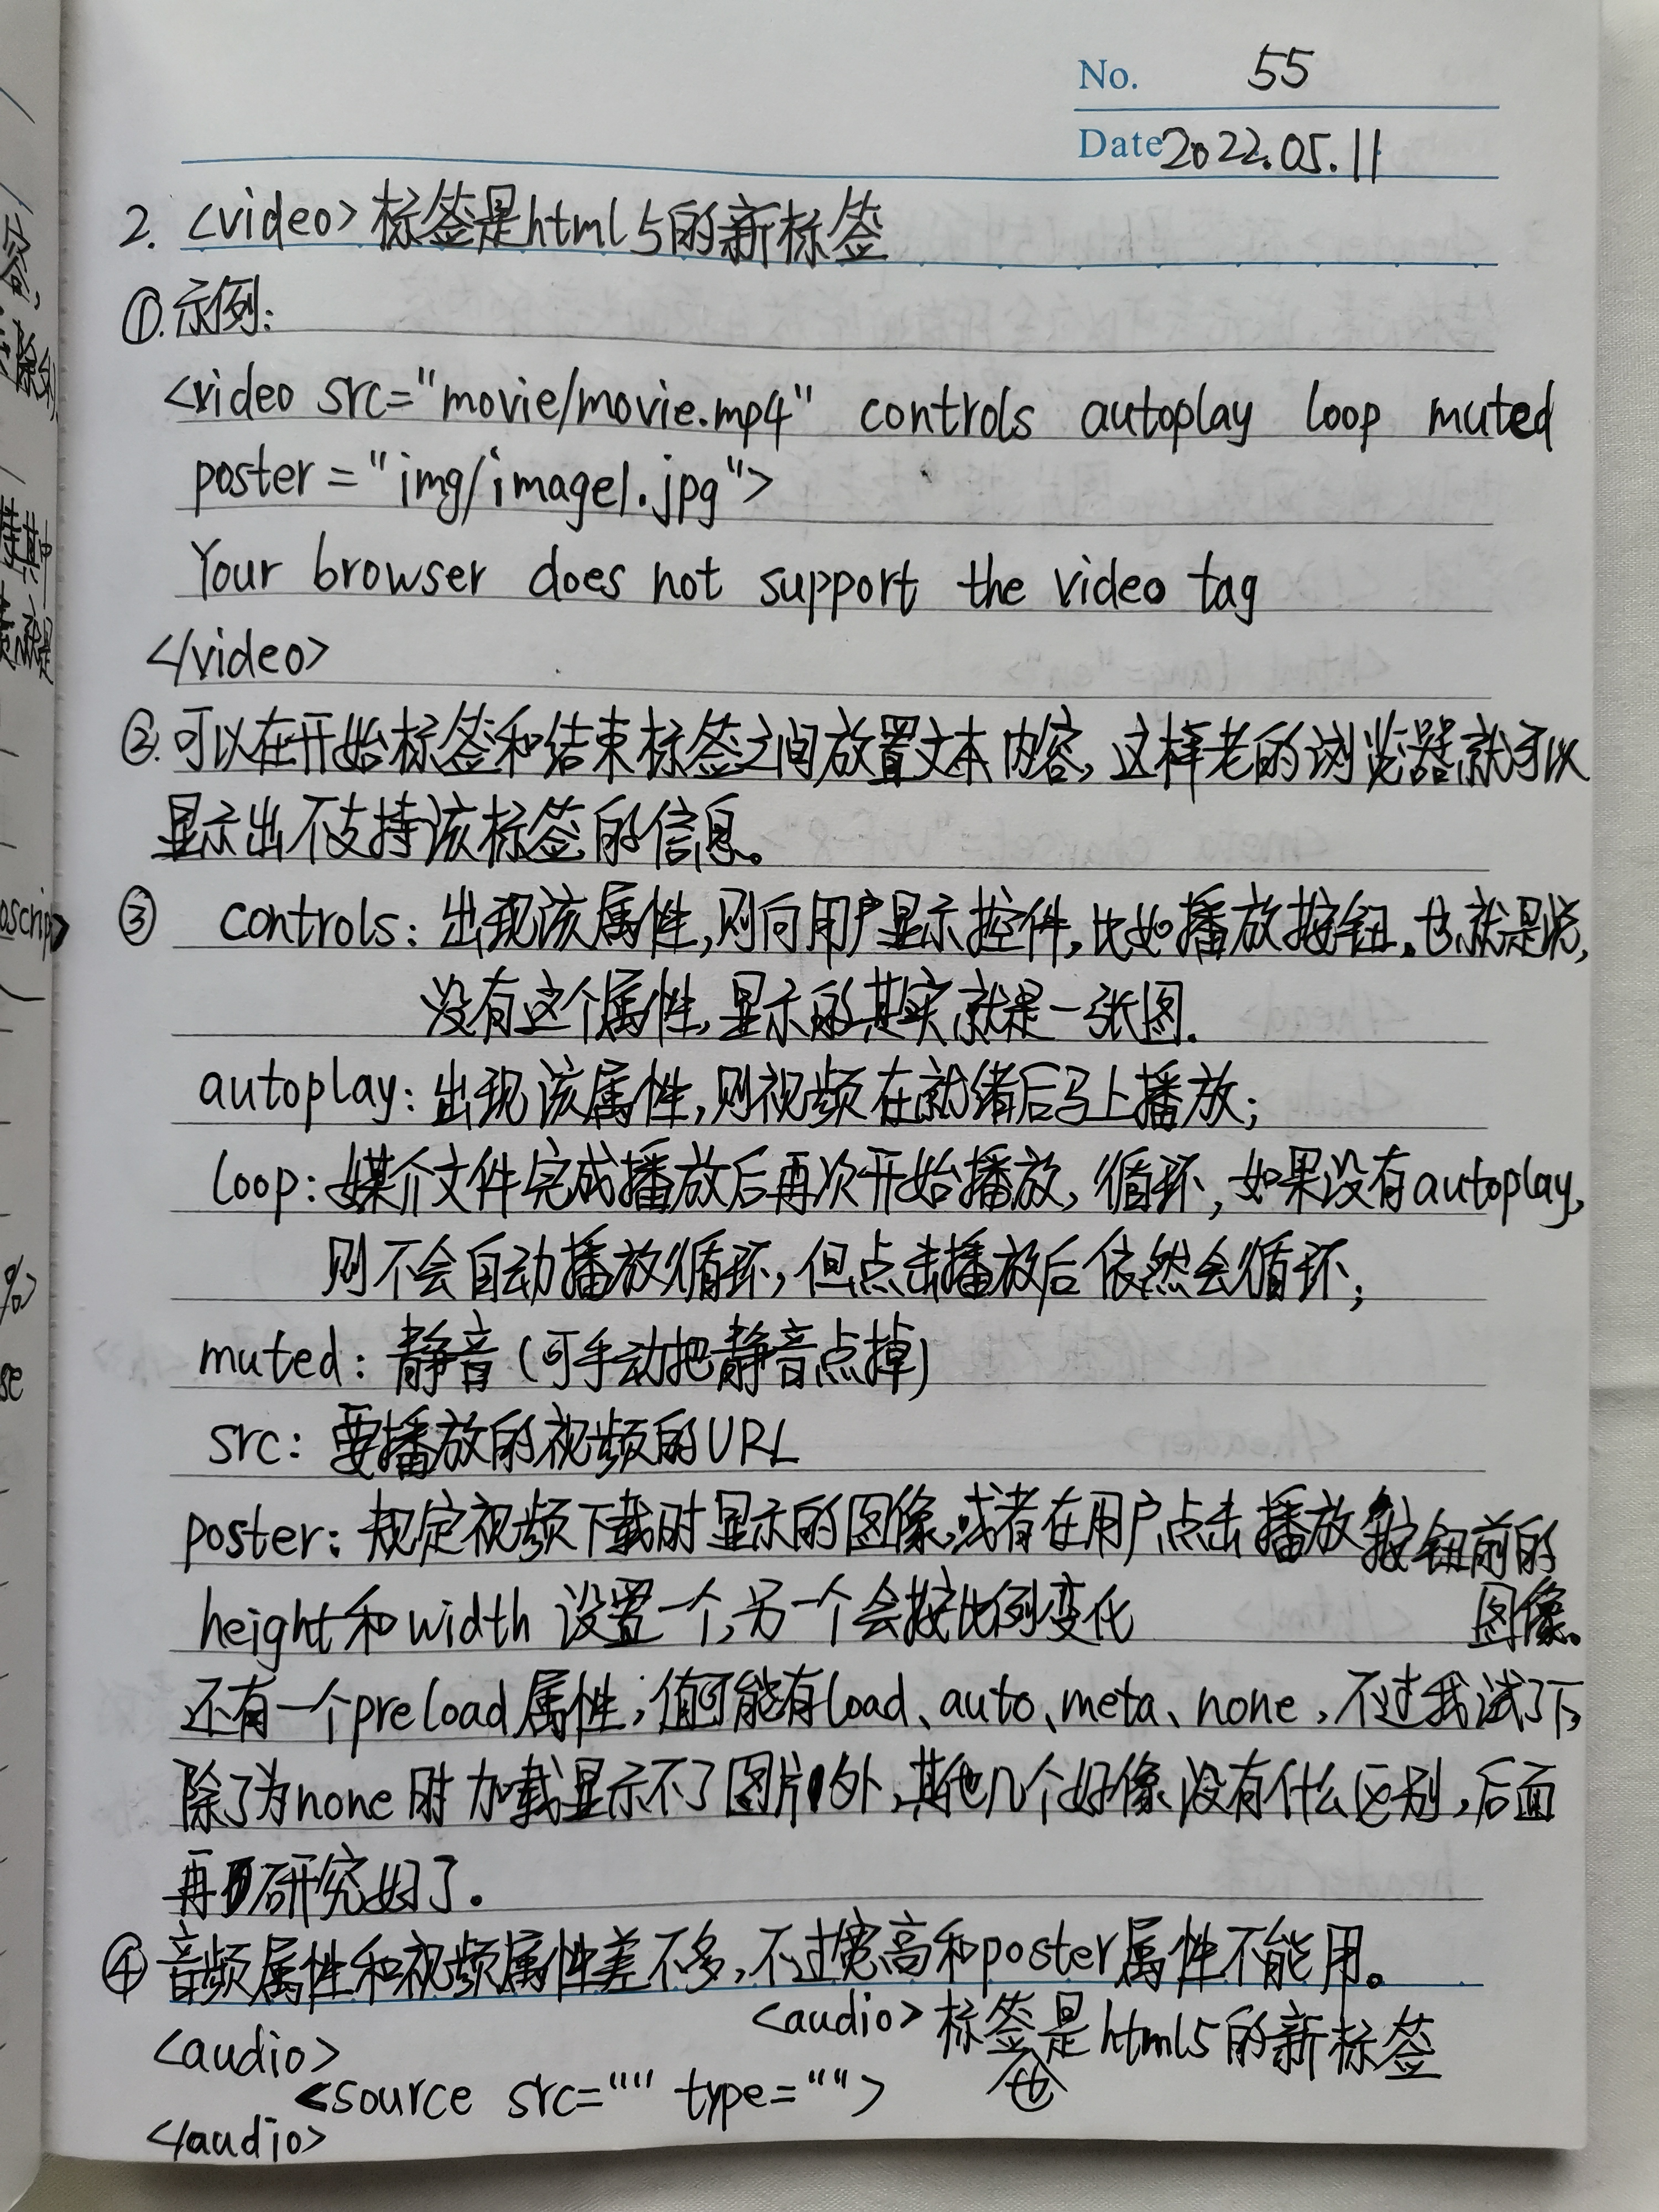 No. 55
Date 2022.05.11
2. <video>标签是html5的新标签
①.示例:
<video src="movie/movie.mp4" controls autoplay loop muted
poster="img/image1.jpg">
Your browser does not support the video tag
</video>
②.可以在开始标签和结束标签之间放置文本内容,这样老的浏览器就可以
显示出不支持该标签的信息。
③ controls: 出现该属性,则向用户显示控件,比如播放按钮。也就是说,
没有这个属性,显示的其实就是一张图.
autoplay: 出现该属性,则视频在就绪后马上播放;
loop: 媒介文件完成播放后再次开始播放,循环,如果没有autoplay,
则不会自动播放循环,但点击播放后依然会循环;
muted: 静音(可手动把静音点掉)
src: 要播放的视频的URL
poster: 规定视频下载时显示的图像,或者在用户点击播放按钮前的
图像。
height和width 设置一个,另一个会按比例变化
还有一个preload属性;值可能有load、auto、meta、none,不过我试了下,
除了为none时加载显示不了图片外,其他几个好像没有什么区别,后面
再研究好了.
④音频属性和视频属性差不多,不过宽高和poster属性不能用。
<audio>标签是html5的新标签
也
<audio>
<source src="" type="">
</audio>